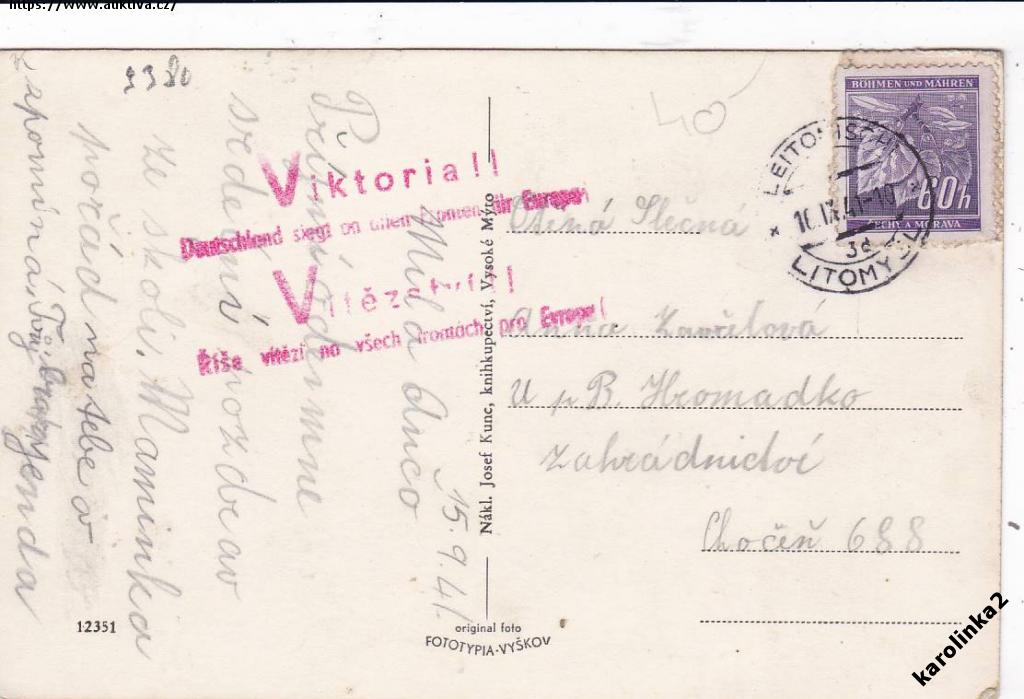 https://www.auktiva.cz/
2380
40
BÖHMEN UND MÄHREN
60h
ČECHY A MORAVA
LEITOMISCHL
16.IX.41-10
3d
LITOMYŠL
Viktoria!!
Deutschland siegt an allen Fronten für Europa!
Vítězství!!
Říše vítězí na všech frontách pro Evropu!
15.9.41.
Milá Anco
Přijmi ode mne
srdečný pozdrav
ze školi. Maminka
pořád na tebe v
zapomíná
Tvůj bratr
Jenda
Nákl. Josef Kunc, knihkupectví, Vysoké Mýto
Ctěná Slečna
Anna
U p B. Hromadko
Zahrádnictví
Choceň 688
12351
original foto
FOTOTYPIA-VYŠKOV
karolinka2